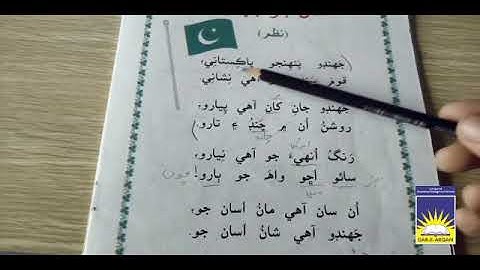 (نظم)
جهنڊو پنهنجو پاڪستاني،
قوم آهي نشاني
جهنڊو جان کان آهي پيارو،
روشن اُن ۾ چنڊ ۽ تارو.
رنگُ اُنهيءَ جو آهي نيارو،
سائو اڇو واهه جو ٻارو!
اُن سان آهي مانُ اسان جو،
جهنڊو آهي شانُ اسان جو.
DAR-E-ARQAM